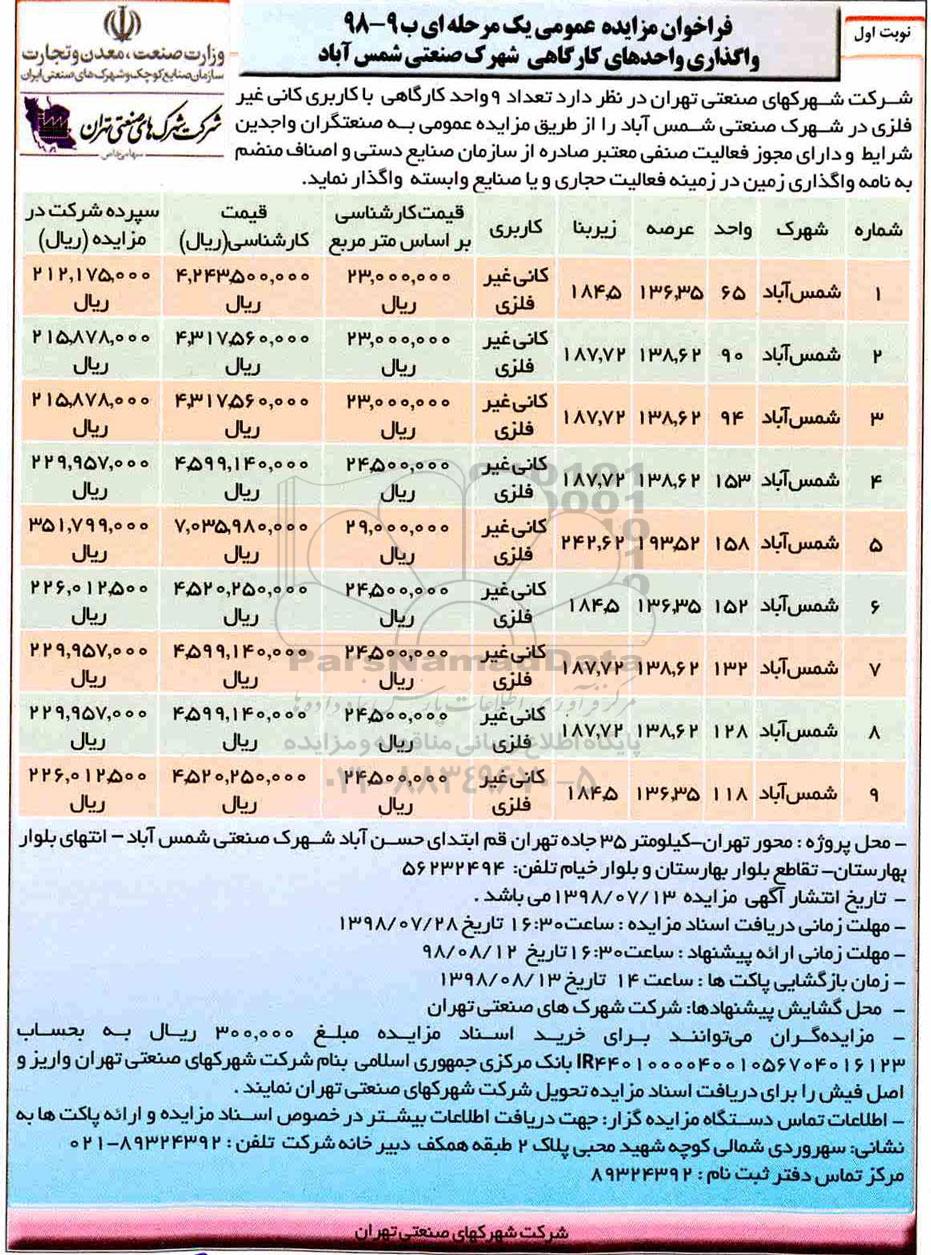 نوبت اول
فراخوان مزایده عمومی یک مرحله ای ب ۹-۹۸
واگذاری واحدهای کارگاهی شهرک صنعتی شمس آباد
وزارت صنعت، معدن و تجارت
سازمان صنایع کوچک و شهرک های صنعتی ایران
شرکت شهرک های صنعتی تهران
سهامی خاص
شرکت شهرکهای صنعتی تهران در نظر دارد تعداد ۹ واحد کارگاهی با کاربری کانی غیر
فلزی در شهرک صنعتی شمس آباد را از طریق مزایده عمومی به صنعتگران واجدین
شرایط و دارای مجوز فعالیت صنفی معتبر صادره از سازمان صنایع دستی و اصناف منضم
به نامه واگذاری زمین در زمینه فعالیت حجاری و یا صنایع وابسته واگذار نماید.
شماره شهرک واحد عرصه زیربنا کاربری قیمت کارشناسی بر اساس متر مربع قیمت کارشناسی(ریال) سپرده شرکت در مزایده (ریال)
۱ شمس آباد ۶۵ ۱۳۶,۳۵ ۱۸۴,۵ کانی غیر فلزی ۲۳,۰۰۰,۰۰۰ ریال ۴,۲۴۳,۵۰۰,۰۰۰ ریال ۲۱۲,۱۷۵,۰۰۰ ریال
۲ شمس آباد ۹۰ ۱۳۸,۶۲ ۱۸۷,۷۲ کانی غیر فلزی ۲۳,۰۰۰,۰۰۰ ریال ۴,۳۱۷,۵۶۰,۰۰۰ ریال ۲۱۵,۸۷۸,۰۰۰ ریال
۳ شمس آباد ۹۴ ۱۳۸,۶۲ ۱۸۷,۷۲ کانی غیر فلزی ۲۳,۰۰۰,۰۰۰ ریال ۴,۳۱۷,۵۶۰,۰۰۰ ریال ۲۱۵,۸۷۸,۰۰۰ ریال
۴ شمس آباد ۱۵۳ ۱۳۸,۶۲ ۱۸۷,۷۲ کانی غیر فلزی ۲۴,۵۰۰,۰۰۰ ریال ۴,۵۹۹,۱۴۰,۰۰۰ ریال ۲۲۹,۹۵۷,۰۰۰ ریال
۵ شمس آباد ۱۵۸ ۱۹۳,۵۲ ۲۴۲,۶۲ کانی غیر فلزی ۲۹,۰۰۰,۰۰۰ ریال ۷,۰۳۵,۹۸۰,۰۰۰ ریال ۳۵۱,۷۹۹,۰۰۰ ریال
۶ شمس آباد ۱۵۲ ۱۳۶,۳۵ ۱۸۴,۵ کانی غیر فلزی ۲۴,۵۰۰,۰۰۰ ریال ۴,۵۲۰,۲۵۰,۰۰۰ ریال ۲۲۶,۰۱۲,۵۰۰ ریال
۷ شمس آباد ۱۳۲ ۱۳۸,۶۲ ۱۸۷,۷۲ کانی غیر فلزی ۲۴,۵۰۰,۰۰۰ ریال ۴,۵۹۹,۱۴۰,۰۰۰ ریال ۲۲۹,۹۵۷,۰۰۰ ریال
۸ شمس آباد ۱۲۸ ۱۳۸,۶۲ ۱۸۷,۷۲ کانی غیر فلزی ۲۴,۵۰۰,۰۰۰ ریال ۴,۵۹۹,۱۴۰,۰۰۰ ریال ۲۲۹,۹۵۷,۰۰۰ ریال
۹ شمس آباد ۱۱۸ ۱۳۶,۳۵ ۱۸۴,۵ کانی غیر فلزی ۲۴,۵۰۰,۰۰۰ ریال ۴,۵۲۰,۲۵۰,۰۰۰ ریال ۲۲۶,۰۱۲,۵۰۰ ریال
ParsNamadData
مرکز فرآوری اطلاعات پارس نماد داده ها
پایگاه اطلاع رسانی مناقصه و مزایده
۰۲۱-۸۸۳۴۹۶۷۰-۵
- محل پروژه : محور تهران-کیلومتر ۳۵ جاده تهران قم ابتدای حسن آباد شهرک صنعتی شمس آباد - انتهای بلوار
بهارستان- تقاطع بلوار بهارستان و بلوار خیام تلفن: ۵۶۲۳۲۴۹۴
- تاریخ انتشار آگهی مزایده ۱۳۹۸/۰۷/۱۳ می باشد .
- مهلت زمانی دریافت اسناد مزایده : ساعت ۱۶:۳۰ تاریخ ۱۳۹۸/۰۷/۲۸
- مهلت زمانی ارائه پیشنهاد : ساعت ۱۶:۳۰ تاریخ ۹۸/۰۸/۱۲
- زمان بازگشایی پاکت ها : ساعت ۱۴ تاریخ ۱۳۹۸/۰۸/۱۳
- محل گشایش پیشنهادها: شرکت شهرک های صنعتی تهران
- مزایده‌گران می‌توانند برای خرید اسناد مزایده مبلغ ۳۰۰,۰۰۰ ریال به بحساب
IR۴۴۰۱۰۰۰۰۴۰۰۱۰۵۶۷۰۴۰۱۶۱۲۳ بانک مرکزی جمهوری اسلامی بنام شرکت شهرکهای صنعتی تهران واریز و
اصل فیش را برای دریافت اسناد مزایده تحویل شرکت شهرکهای صنعتی تهران نمایند .
- اطلاعات تماس دستگاه مزایده گزار: جهت دریافت اطلاعات بیشتر در خصوص اسناد مزایده و ارائه پاکت ها به
نشانی: سهروردی شمالی کوچه شهید محبی پلاک ۲ طبقه همکف دبیر خانه شرکت تلفن : ۸۹۳۲۴۳۹۲-۰۲۱
مرکز تماس دفتر ثبت نام : ۸۹۳۲۴۳۹۲
شرکت شهرکهای صنعتی تهران